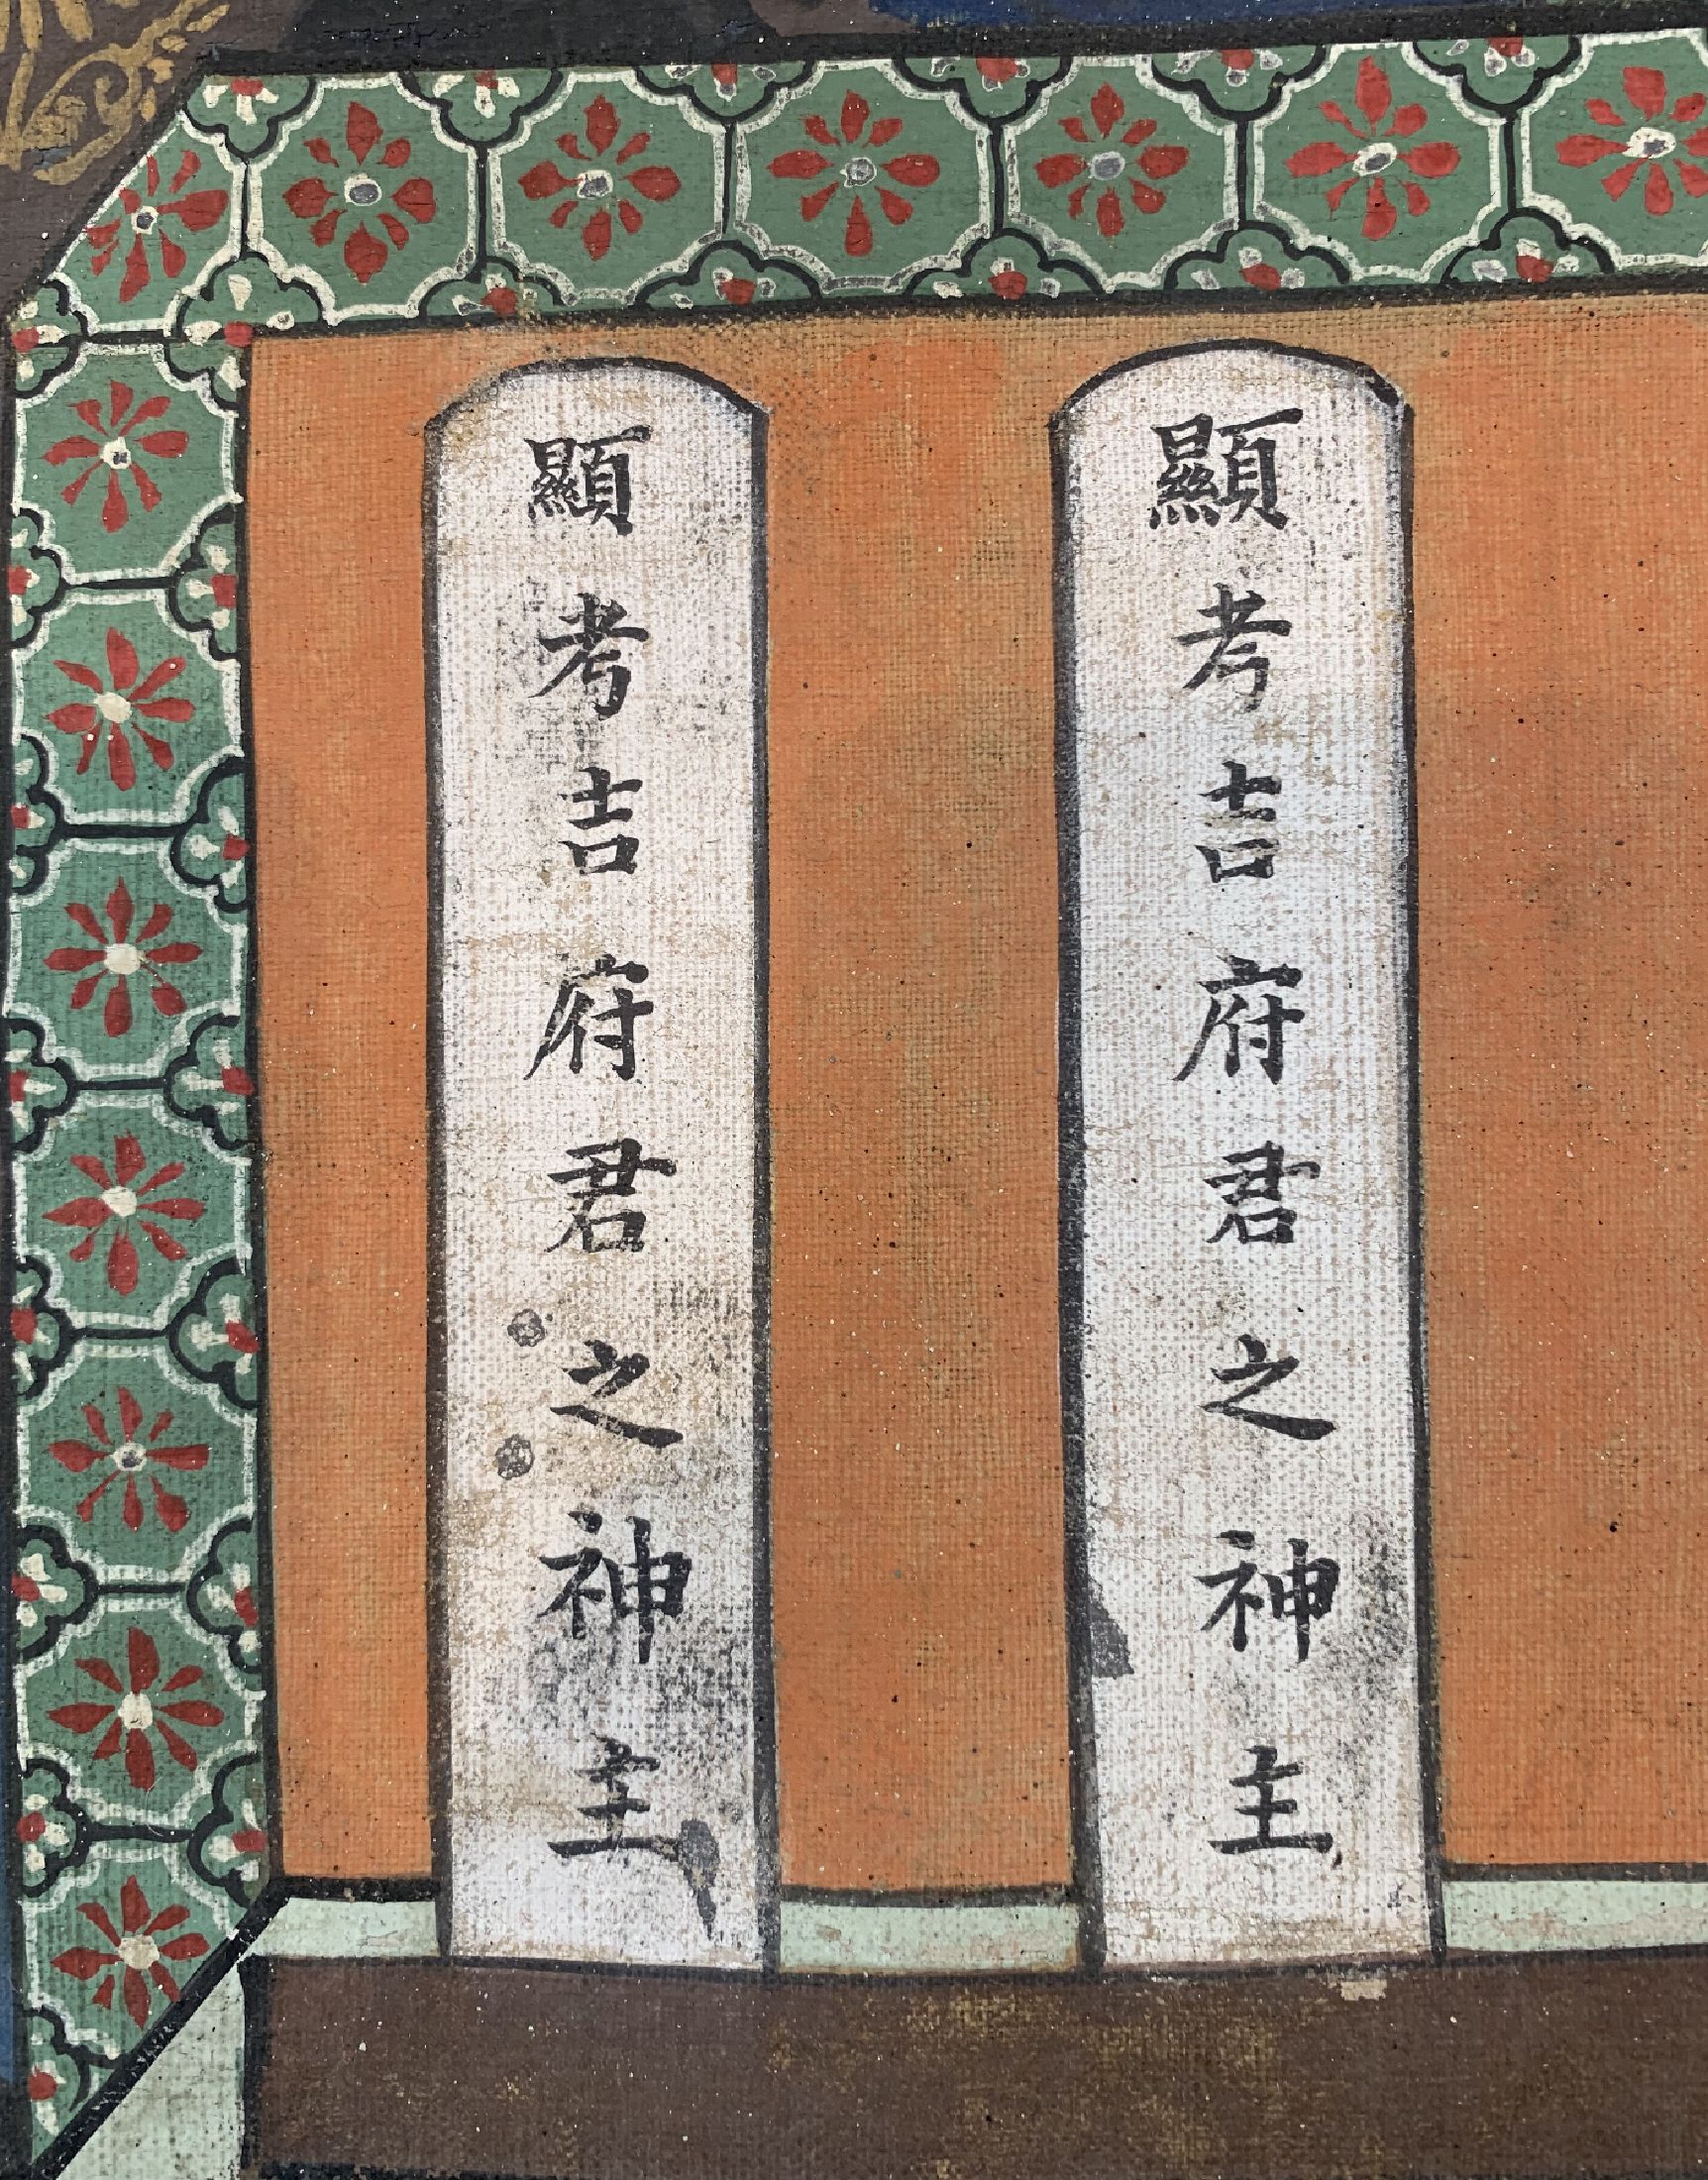 顯考吉府君之神主
顯考吉府君之神主